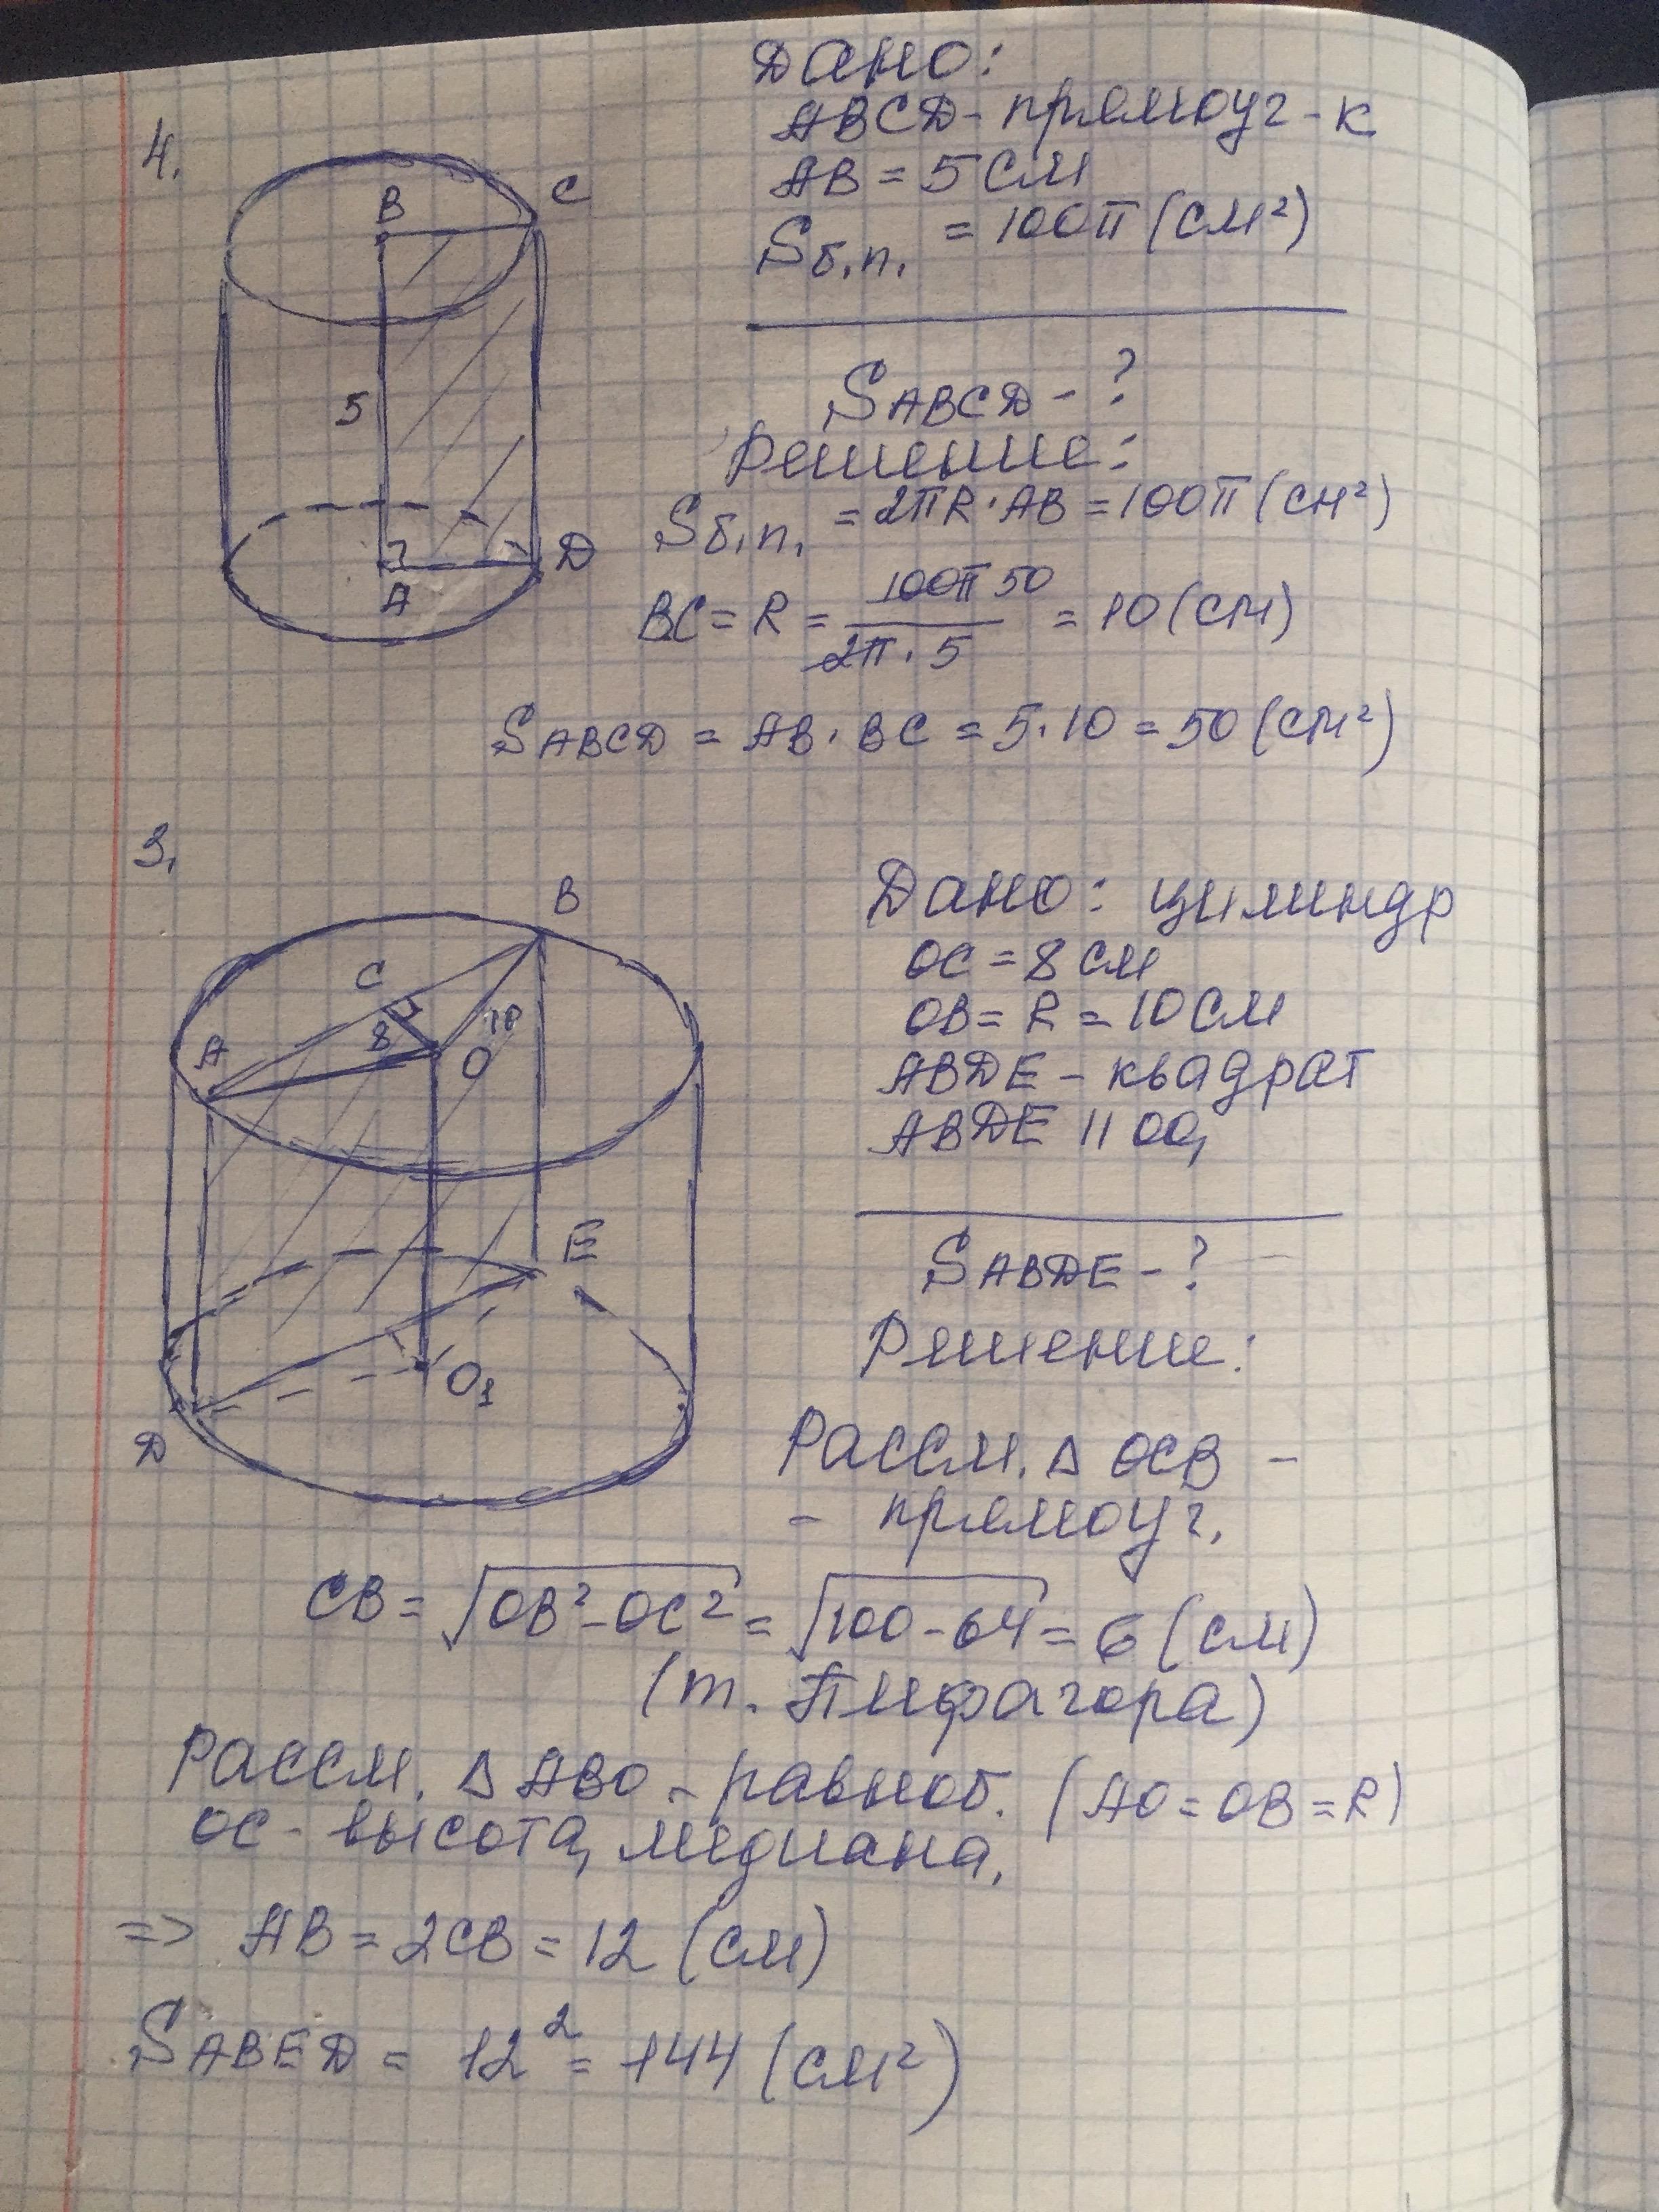 4.
Дано:
ABCD - прямоуг-к
AB = 5 см
Sб.п. = 100π (см²)
B
C
5
A
D
SABCD - ?
Решение:
Sб.п. = 2πR · AB = 100π (см²)
BC = R = 100π 50 / 2π · 5 = 10 (см)
SABCD = AB · BC = 5 · 10 = 50 (см²)
3.
Дано: цилиндр
OC = 8 см
OB = R = 10 см
ABDE - квадрат
ABDE || OO₁
B
C
A
8
10
O
E
O₁
D
SABDE - ?
Решение:
Рассм. Δ OCB -
- прямоуг.
CB = √OB² - OC² = √100 - 64 = 6 (см)
(т. Пифагора)
Рассм. Δ ABO - равноб. (AO = OB = R)
OC - высота, медиана,
=> AB = 2CB = 12 (см)
SABED = 12² = 144 (см²)